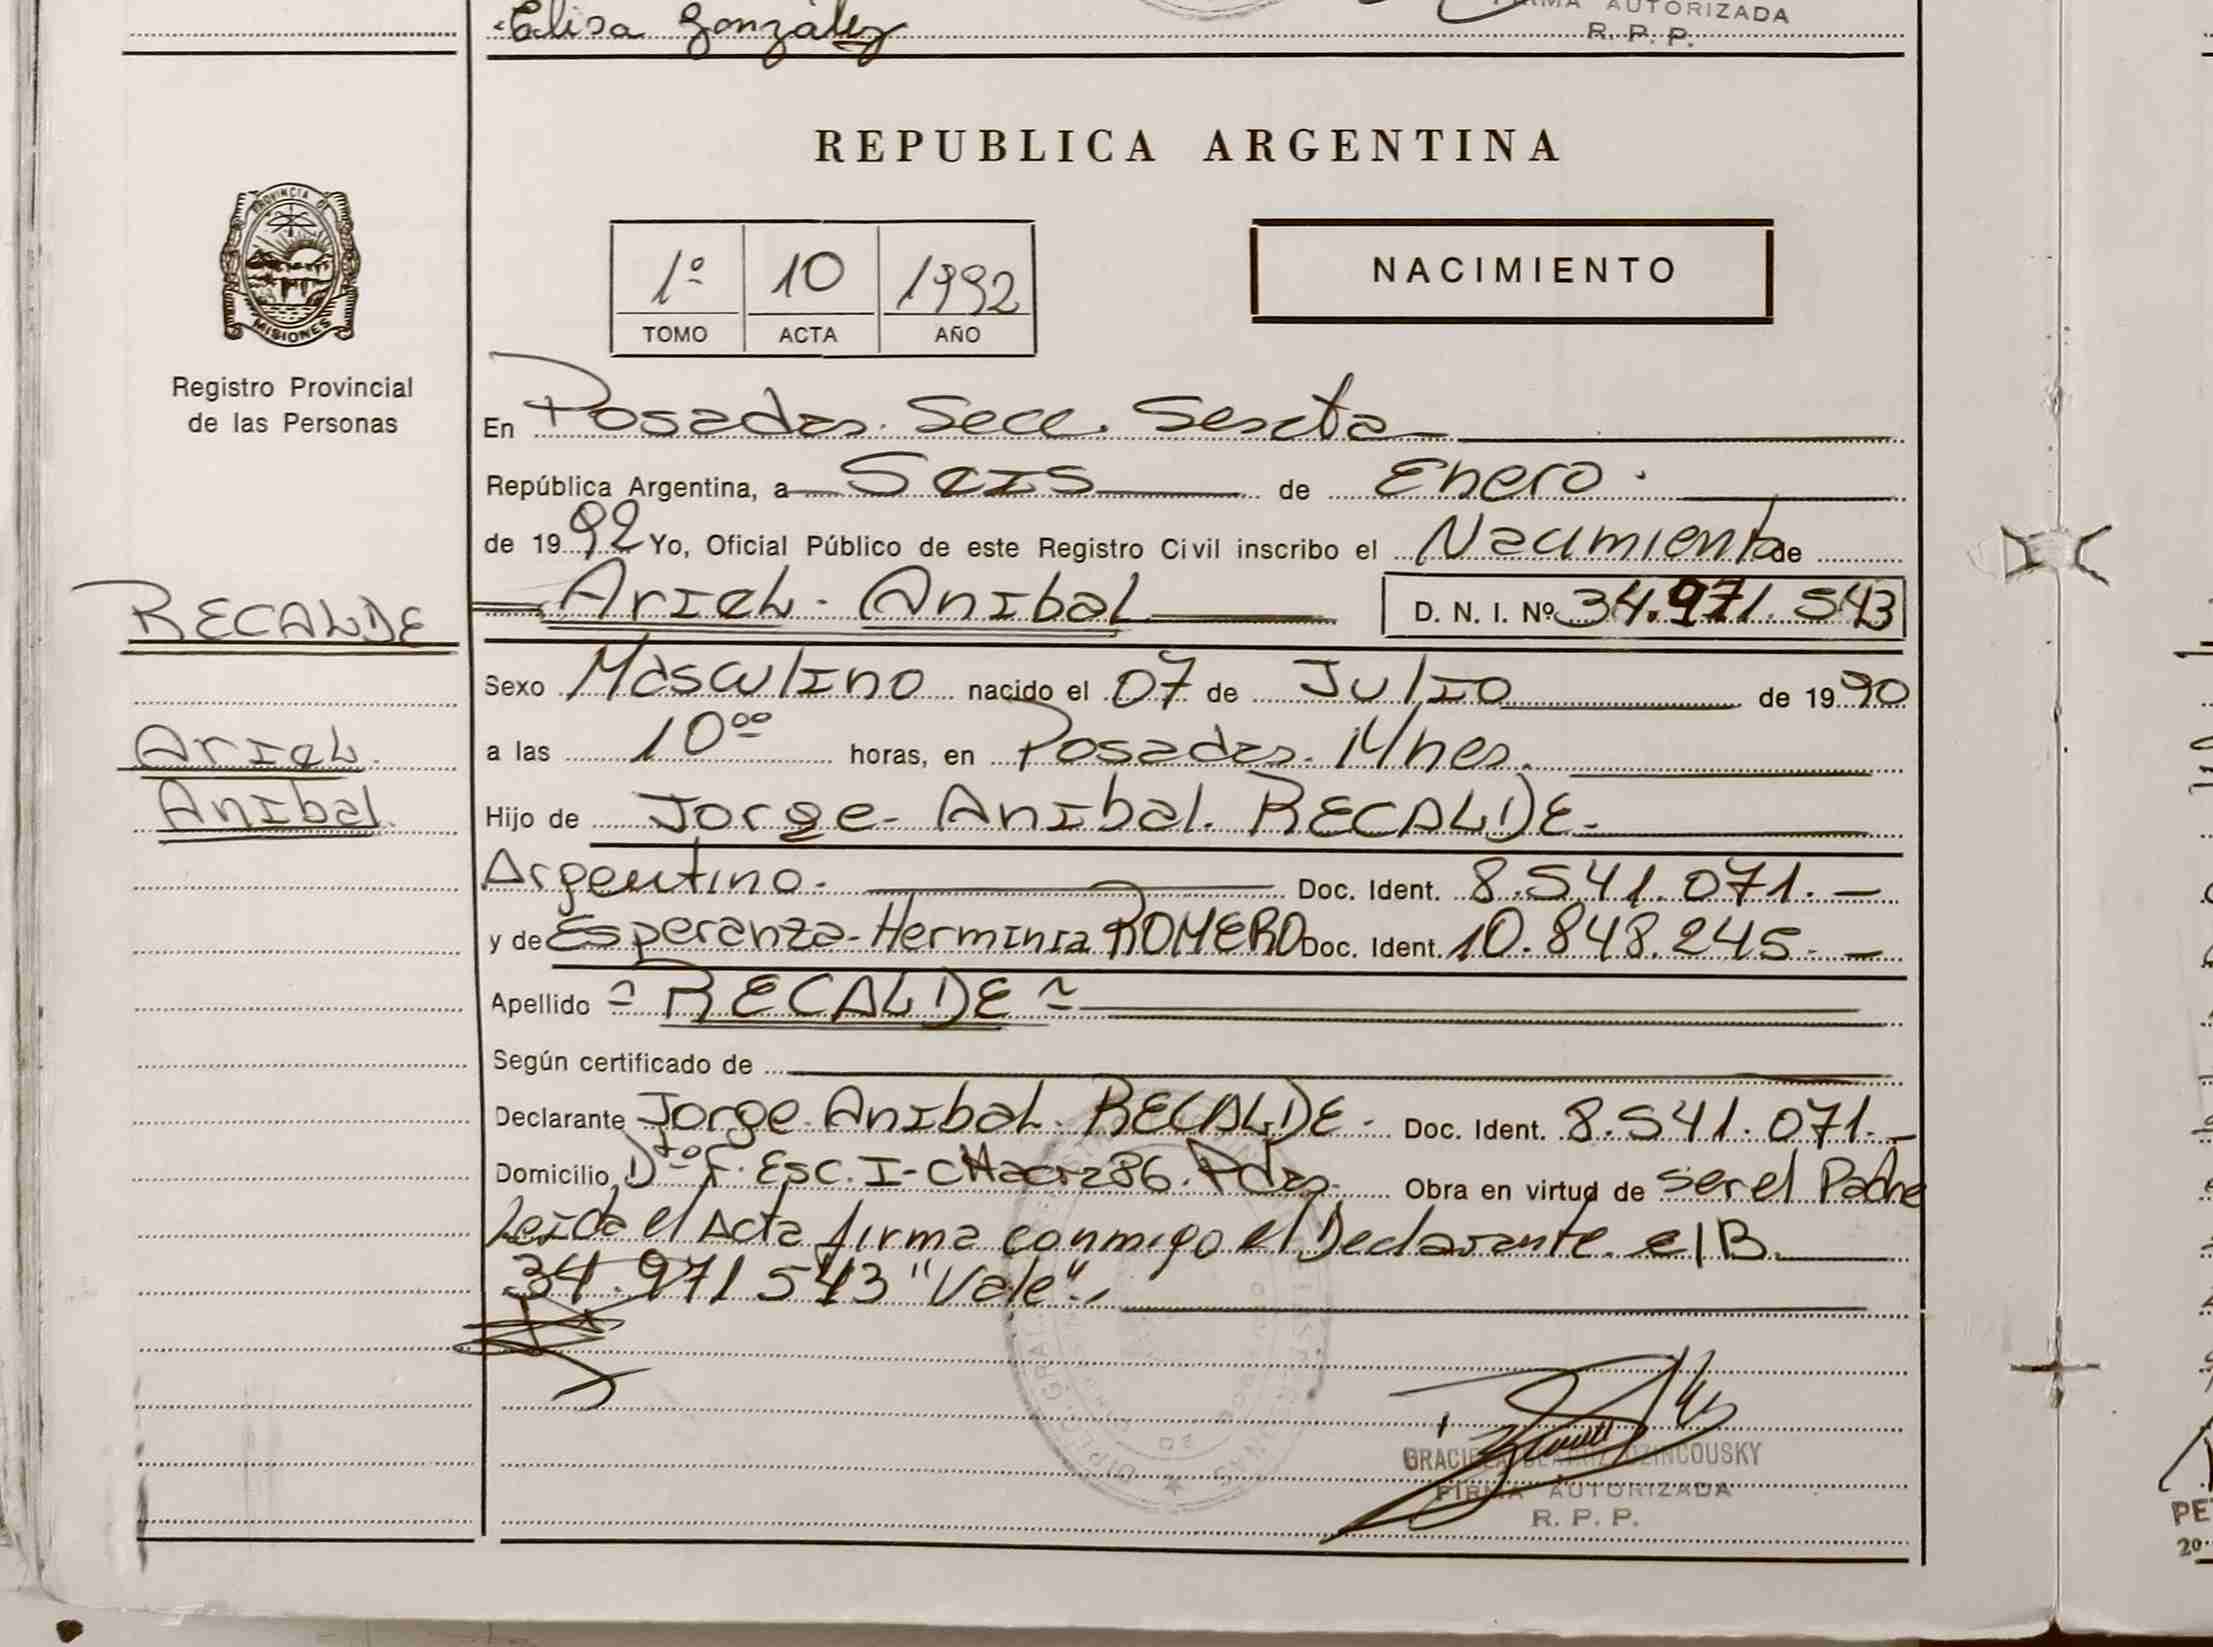 Elisa González
FIRMA AUTORIZADA
R. P. P.
REPUBLICA ARGENTINA
PROVINCIA DE
MISIONES
Registro Provincial
de las Personas
1º 10 1992
TOMO ACTA AÑO
NACIMIENTO
En Posadas. Secc. Sexta
República Argentina, a Seis de Enero.
de 1992 Yo, Oficial Público de este Registro Civil inscribo el Nacimiento de
Ariel. Anibal D. N. I. Nº 34.971.543
RECALDE
Ariel.
Anibal.
Sexo Masculino nacido el 07 de Julio de 1990
a las 10⁰⁰ horas, en Posadas. Mnes.
Hijo de Jorge. Anibal. RECALDE.
Argentino. Doc. Ident. 8.541.071.—
y de Esperanza-Herminia ROMERO Doc. Ident. 10.848.245.—
Apellido RECALDE
Según certificado de
Declarante Jorge. Anibal. RECALDE. Doc. Ident. 8.541.071.—
Domicilio Esc. I-CHacra 86. Pdas. Obra en virtud de ser el Padre
Leida el Acta firma conmigo el Declarante. e/B.
34.971543 "Vale".-
FIRMA AUTORIZADA
R. P. P.
PE
20